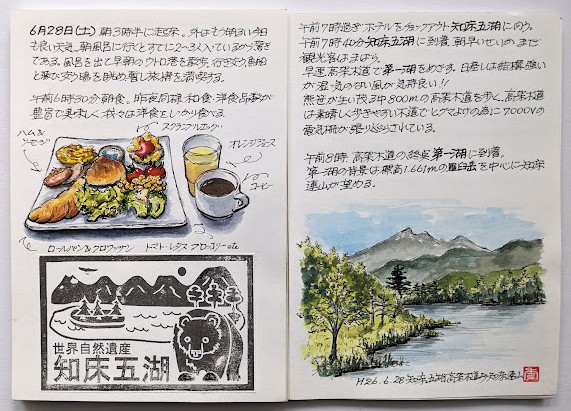 6月28日(土) 朝3時半に起床。外はもう明るい今日
も良い天気。朝風呂に行くとすでに2〜3人入っているのう落ち
である。風呂を出て早朝のウトロ港を散歩、行き交う漁船
と藻の変り様を眺め暫し旅情を満喫する。
午前6時30分朝食。昨夜同様、和食・洋食品数が
豊富で美味しく我々は洋食をしっかり食べる。
スクランブルエッグ
ハム&ソーセージ
オレンジジュース
コーヒー
ロールパン&クロワッサン
トマト・レタス・ブロッコリーetc
世界自然遺産
知床五湖
午前7時過ぎホテルをチェックアウト知床五湖に向う。
午前7時40分知床五湖に到着、朝早いせいか まだ
観光客はまばら。
早速高架木道で第一湖をめざす。日差しは結構強い
が湿気のない風が気持良い!!
熊笹が生い茂る中800mの高架木道を歩く。高架木道
は素晴しく歩きやすい木道でヒグマよけの為に7000Vの
電気柵が張り巡らされている。
午前8時 高架木道の終点第一湖に到着。
第一湖の背景は標高1.661mの羅臼岳を中心に知床
連山が望める。
H26.6.28 知床五湖高架木道より知床連山